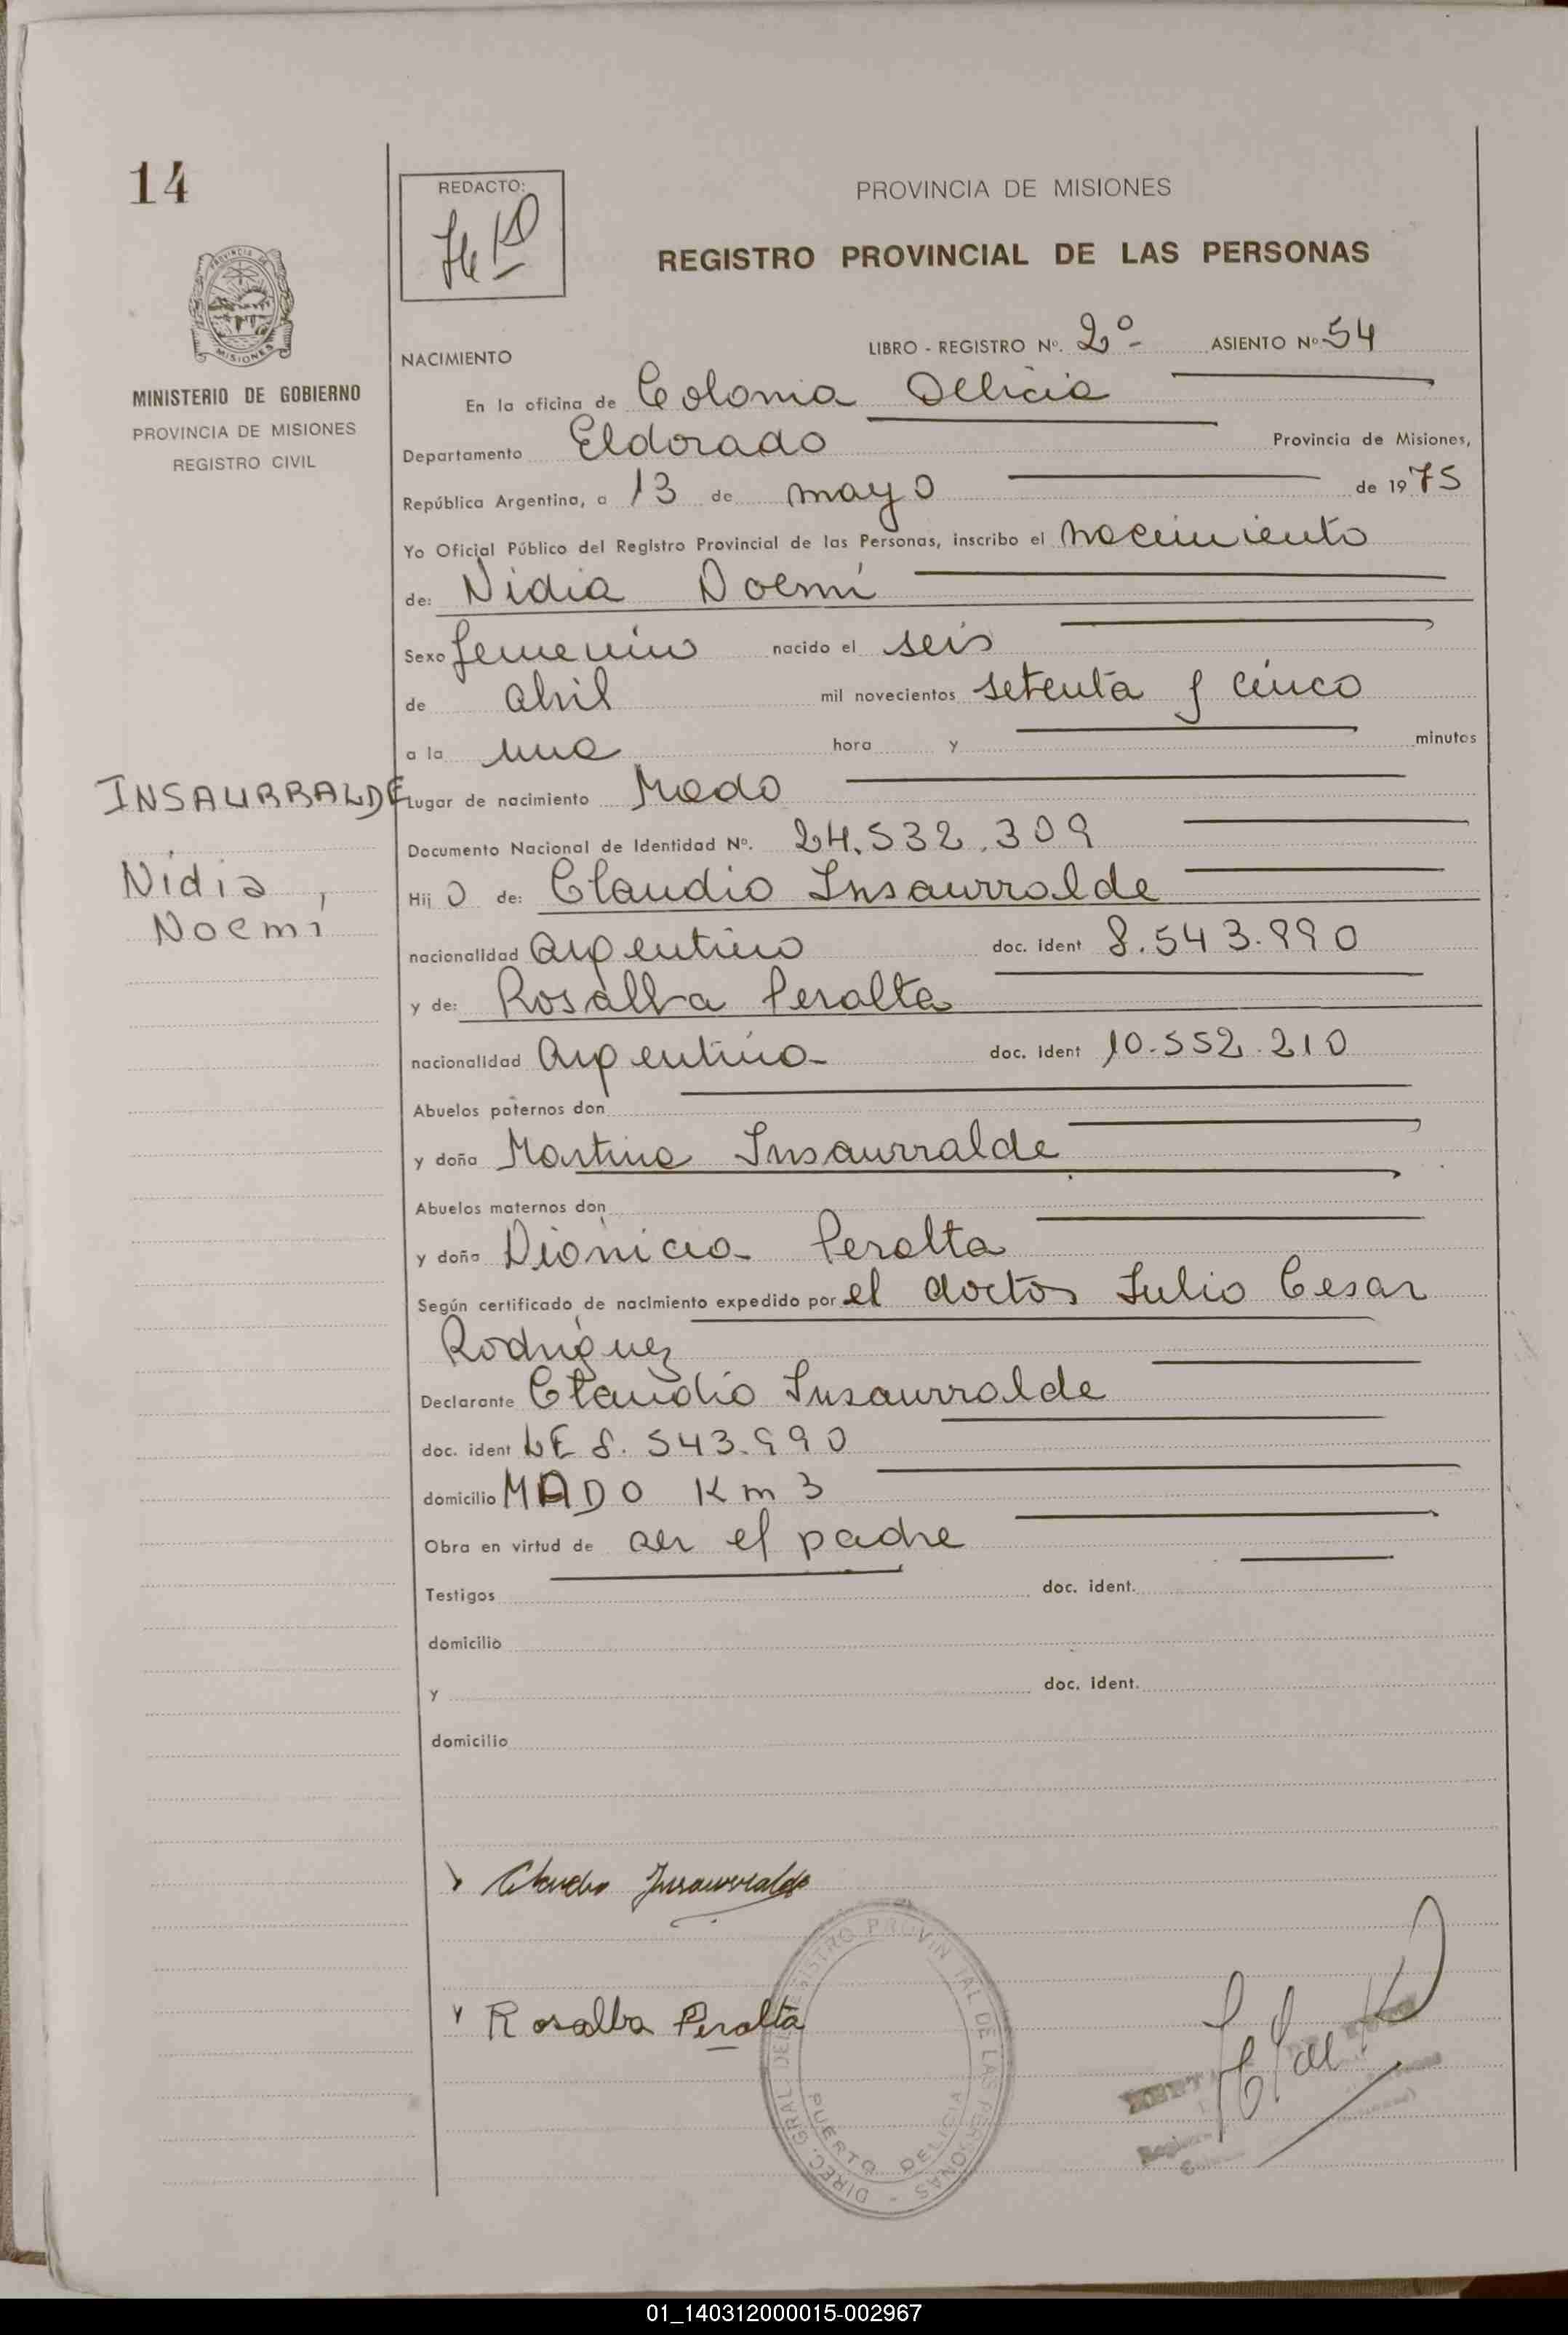 14
REDACTO:
PROVINCIA DE MISIONES
REGISTRO PROVINCIAL DE LAS PERSONAS
MISIONES
MINISTERIO DE GOBIERNO
PROVINCIA DE MISIONES
REGISTRO CIVIL
NACIMIENTO
LIBRO - REGISTRO Nº. 2º- ASIENTO Nº 54
En la oficina de Colonia Delicia
Departamento Eldorado Provincia de Misiones,
República Argentina, a 13 de mayo de 1975
Yo Oficial Público del Registro Provincial de las Personas, inscribo el nacimiento
de: Nidia Noemí
Sexo femenino nacido el seis
de abril mil novecientos setenta y cinco
a la una hora y minutos
Lugar de nacimiento Mado
INSAURRALDE
Nidia
Noemí
Documento Nacional de Identidad Nº. 24.532.309
Hij o de: Claudio Insaurralde
nacionalidad argentino doc. ident 8.543.990
y de: Rosalba Peralta
nacionalidad argentina doc. ident 10.552.210
Abuelos paternos don
y doña Martina Insaurralde
Abuelos maternos don
y doña Dionicia Peralta
Según certificado de nacimiento expedido por el doctor Julio Cesar
Rodriguez
Declarante Claudio Insaurralde
doc. ident LE 8.543.990
domicilio MADO Km 3
Obra en virtud de ser el padre
Testigos doc. ident.
domicilio
y doc. ident.
domicilio
Claudio Insaurralde
Rosalba Peralta
DIREC. GRAL. DEL REGISTRO PROVINCIAL DE LAS PERSONAS -
PUERTO DELICIA
01_140312000015-002967